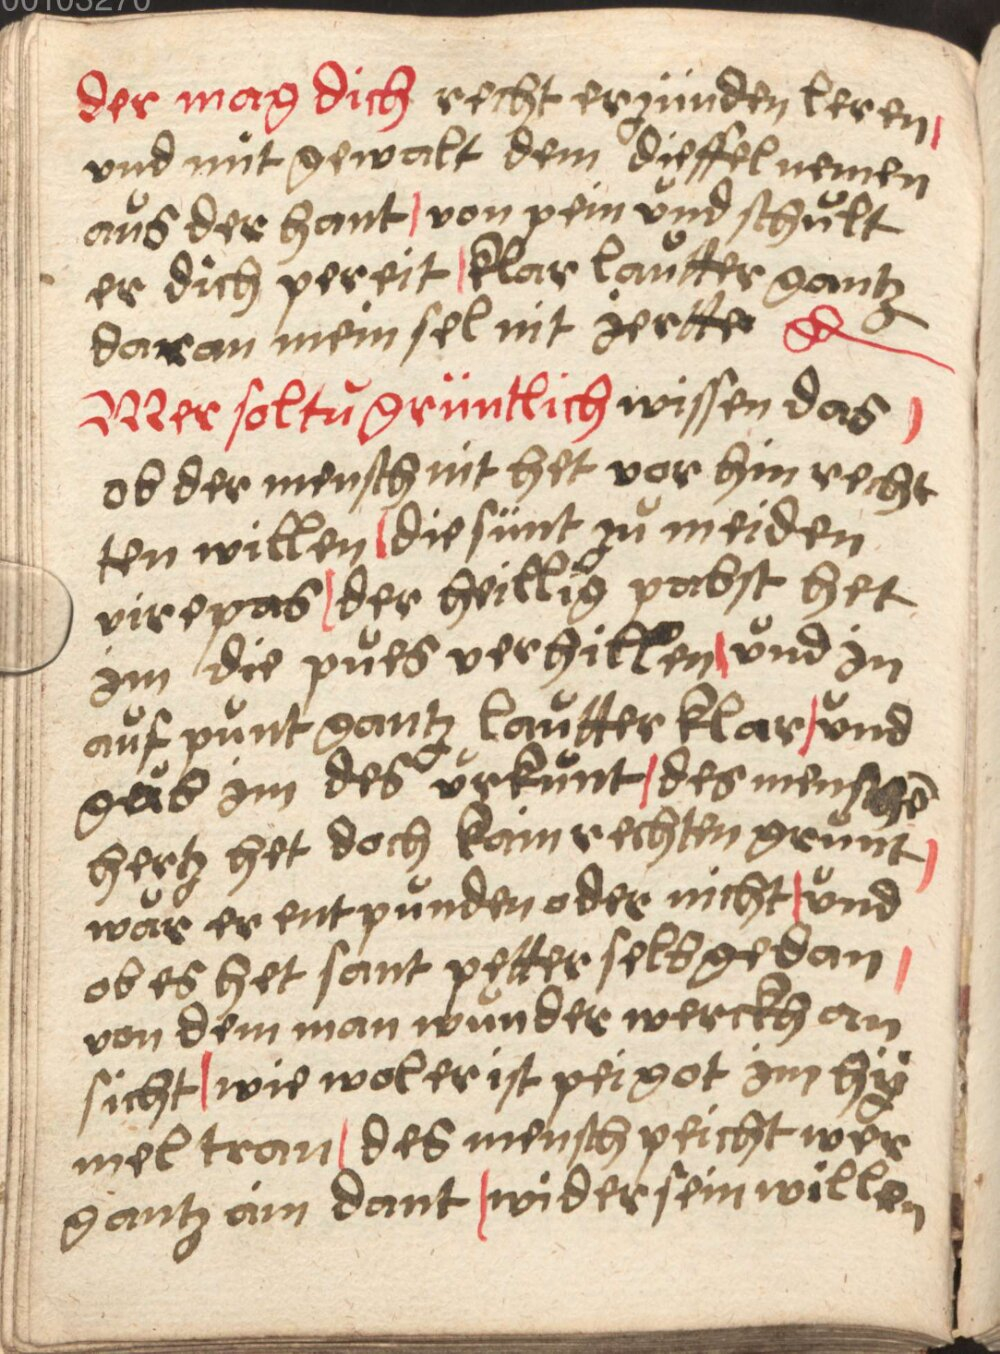 00103270
der mag dich recht ergünden leren /
vnd mit gewalt dem dieffel nemen
aus der hant / von pein vnd schult
er dich pereit / klar lautter gantz
daran mein sel nit jertter
Mer soltu grüntlich wissen das /
ob der mensch nit het vor hin recht
ten willen / die sünt zu meiden
vire pas / der heillig pabst het
im die pues verhillen / vnd in
auf punt gantz lautter klar / vnd
geb im des vrkunt / des menschē
hertz het doch kain rechten grunt /
wär er entpunden oder nicht / vnd
ob es het sant petter selb gedan /
von dem man wunder werckh an
sicht / wie wol er ist pei got im hÿ
mel tran / des mensch peicht wer
gantz ain dant / wider sein willen